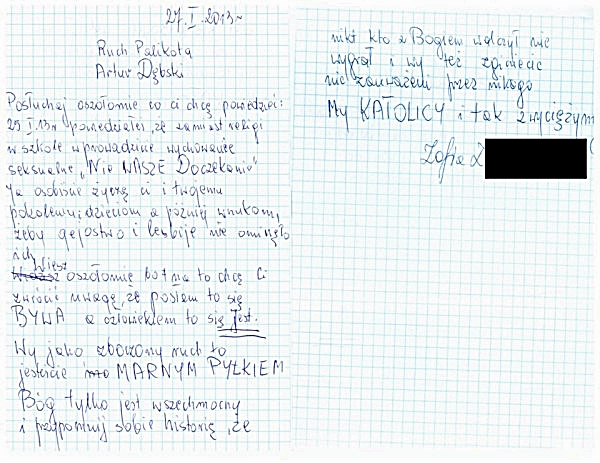 27.I.2013r
Ruch Palikota
Artur Dębski
Posłuchaj oszołomie co ci chcę powiedzieć:
25 I.13r powiedziałeś, że zamiast religi
w szkole wprowadzicie wychowanie
seksualne „Nie WASZE Doczekanie"
Ja osobiście życzę ci i twojemu
pokoleniu; dzieciom a później wnukom,
żeby gejostwo i lesbije nie ominęło
ich
Wiesz oszołomie bo na to chcę Ci
zwrócić uwagę, że posłem to się
BYWA a człowiekiem to się Jest.
Wy jako zboczony ruch to
jesteście MARNYM PYŁKIEM
Bóg tylko jest wszechmocny
i przypomnij sobie historię, że
nikt kto z Bogiem walczył nie
wygrał i wy też zginiecie
nie zauważeni przez nikogo
My KATOLICY i tak zwyciężym
Zofia